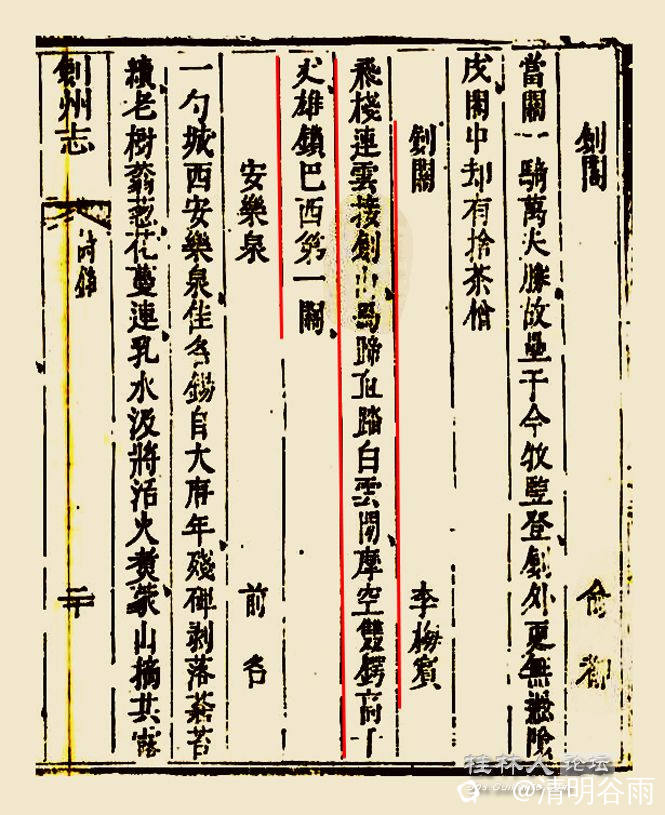 劍閣
當關一騎萬夫勝故壘于今牧豎登劍外更無險
戍關中却有捨茶僧
劍關 李梅賓
飛棧連雲接劍山馬蹄直踏白雲間摩空雙鍔高千
丈雄鎖巴西第一關
安樂泉 前名
一勺城西安樂泉佳名錫自大唐年殘碑剝落蒼苔
老樹蓊葱花蔓連乳水汲將活火煑蒙山摘共露
劍州志
桂林人论坛
@清明谷雨